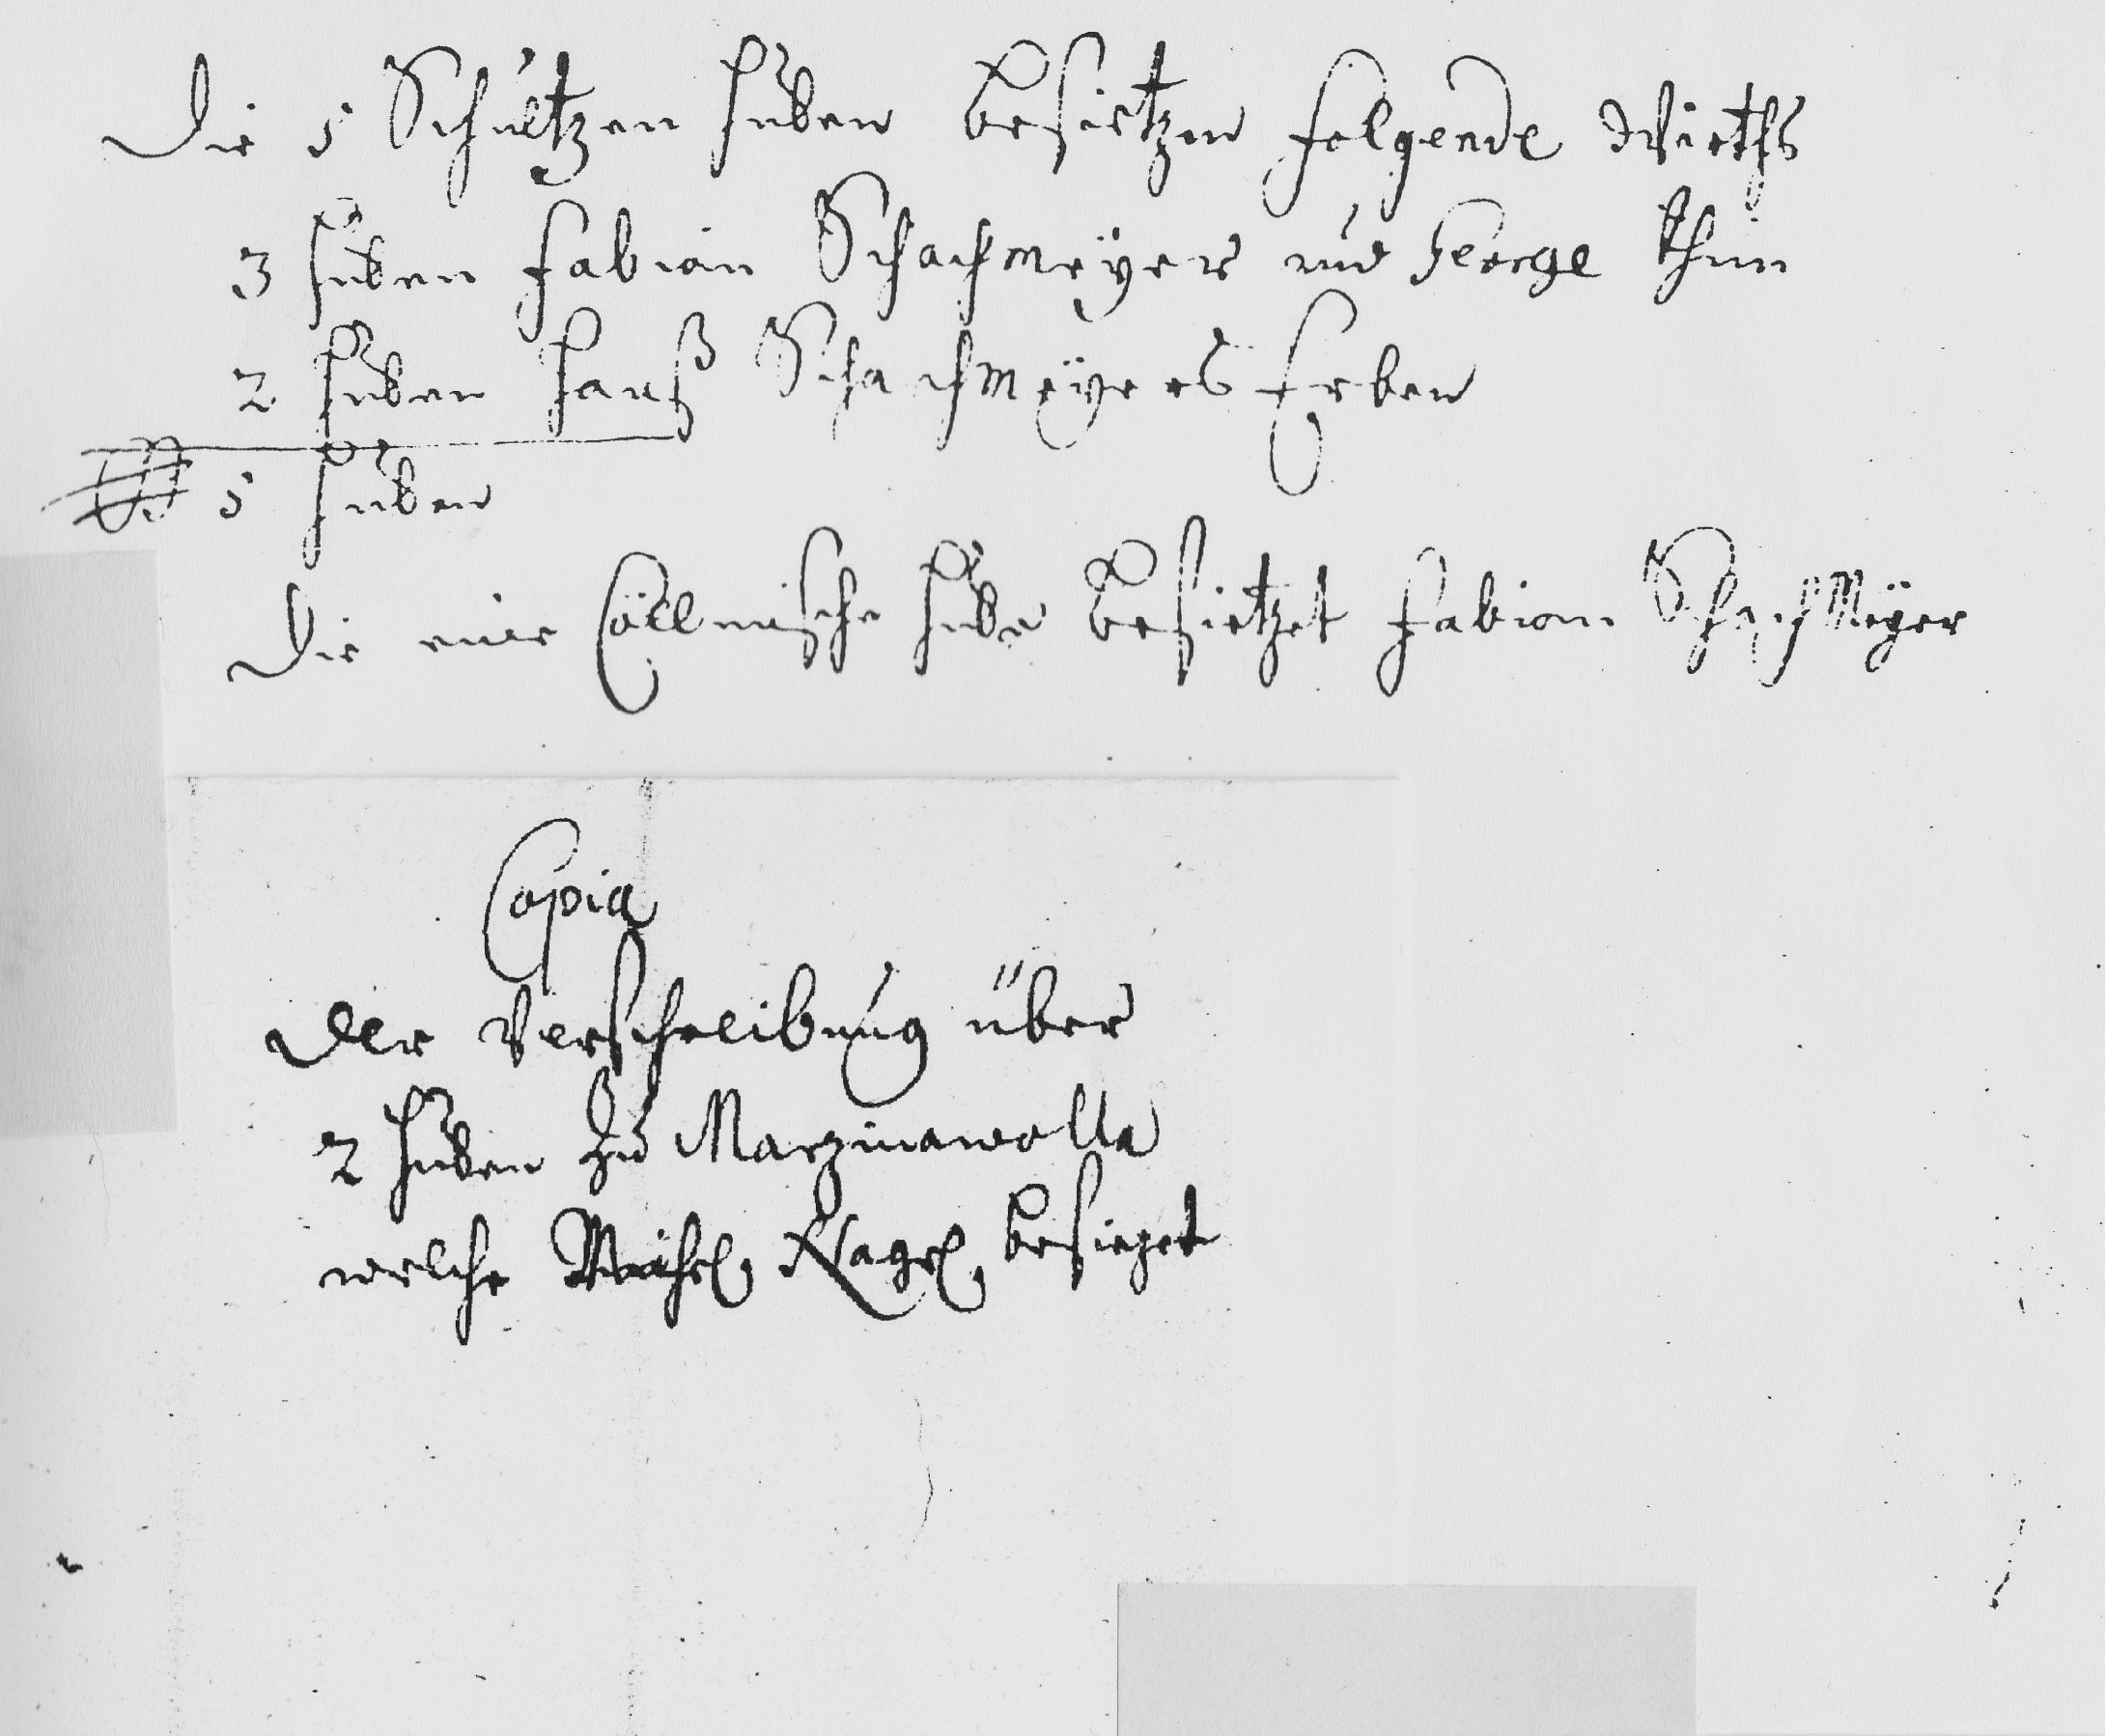 Die 5 Schultzen Huben besietzen folgende Wirths
3 Huben Fabian Schachmeÿer und George Thim
2 Huben Hanß Schachmeÿers Erben
5 Huben
Die eine Cöllmische Hube besietzet Fabian SchachMeÿer
Copia
Der Verschreibung über
2 Huben zu Marzinawolla
welche Michel Nagel besiezet